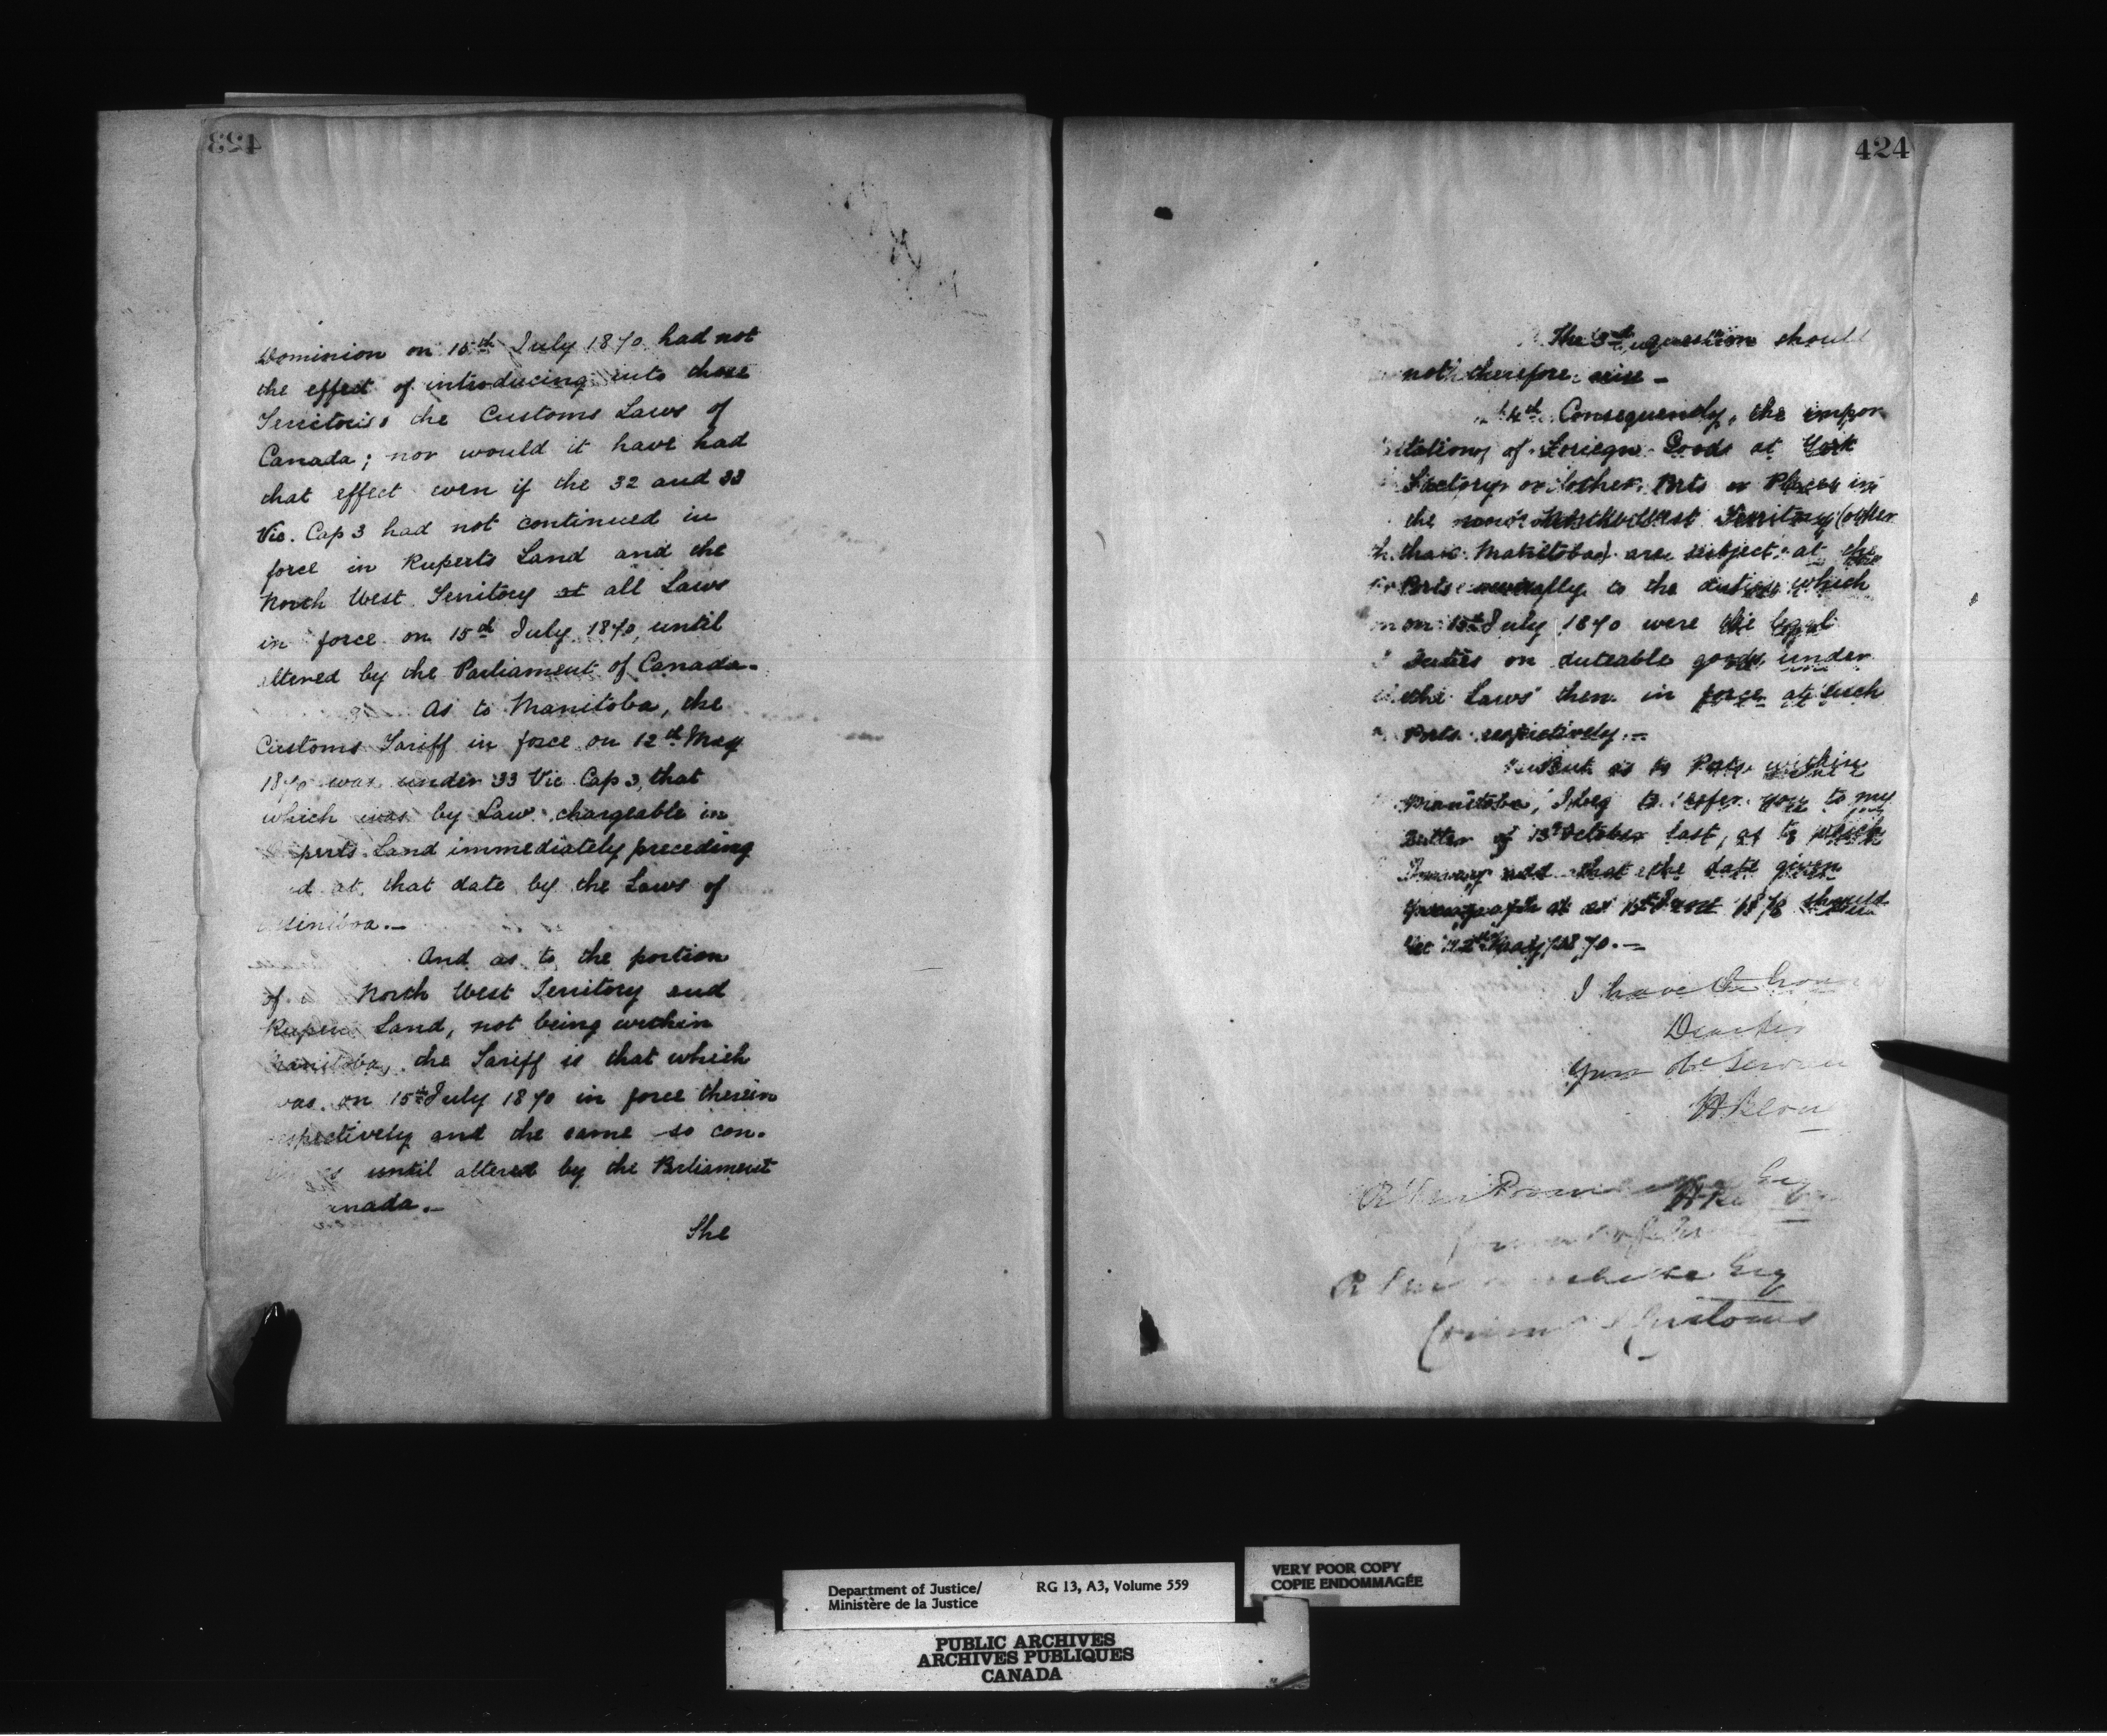 423
Dominion on 15th July 1870 had not
the effect of introducing into those
Territories the Customs Laws of
Canada; nor would it have had
that effect even if the 32 and 33
Vic. Cap 3 had not continued in
force in Ruperts Land and the
North West Territory all Laws
in force on 15th July 1870, until
altered by the Parliament of Canada.
As to Manitoba, the
Customs Tariff in force on 12th May
1870 was under 33 Vic Cap 3, that
which was by Law chargeable in
perts Land immediately preceding
d at that date by the Laws of
siniboa.—
And as to the portion
of North West Territory and
Ruper Land, not being within
Manitoba, the Tariff is that which
was on 15th July 1870 in force therein
spectively and the same so con-
until altered by the Parliament
anada.—
The
424
The 3rd question should
not therefore arise —
4th Consequently, the impor
tation of Foriegn Goods at York
Factory or other Ports or Places in
the North West Territory (other
than Manitoba) are subject at the
Ports severally to the duties which
on 15th July 1870 were the legal
Duties on duteable goods under
the Laws then in force at such
Ports respectively.—
But as to Ports within
Manitoba, I beg to refer you to my
Letter of 13th October last, as to which
I may add that the date given
at as 15th 1870 should
be 12th May 1870.—
I have the hon
Dear Sir
Your Obt Servan
H Bern
Esq
R Esq
Comm Customs
Department of Justice/
Ministère de la Justice
RG 13, A3, Volume 559
VERY POOR COPY
COPIE ENDOMMAGÉE
PUBLIC ARCHIVES
ARCHIVES PUBLIQUES
CANADA